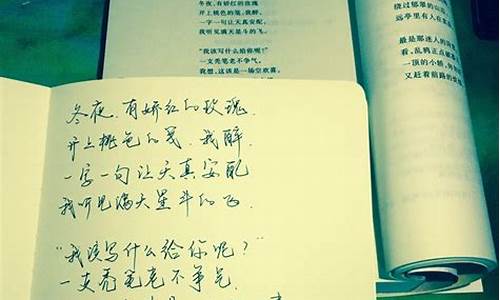 冬夜，有娇红的玫瑰
开上桃色的笺，我醉，
一字一句让天真安配
我听见满天星斗的飞，
“我该写什么给你呢？”
一支秃笔老不争气，
我想，这该是一场空欢喜。
绕过郁翠的山
远亭里有人在
最是那迷人的
看，乱鸦正点
一顶的小轿，
又赶着前路的
冬夜.有娇红的玫瑰.
开上桃色的笺.我醉.
一字一句让天真安配
我听见满天星斗的飞.
“我该写什么给你呢？”
一支秃笔老不争气.